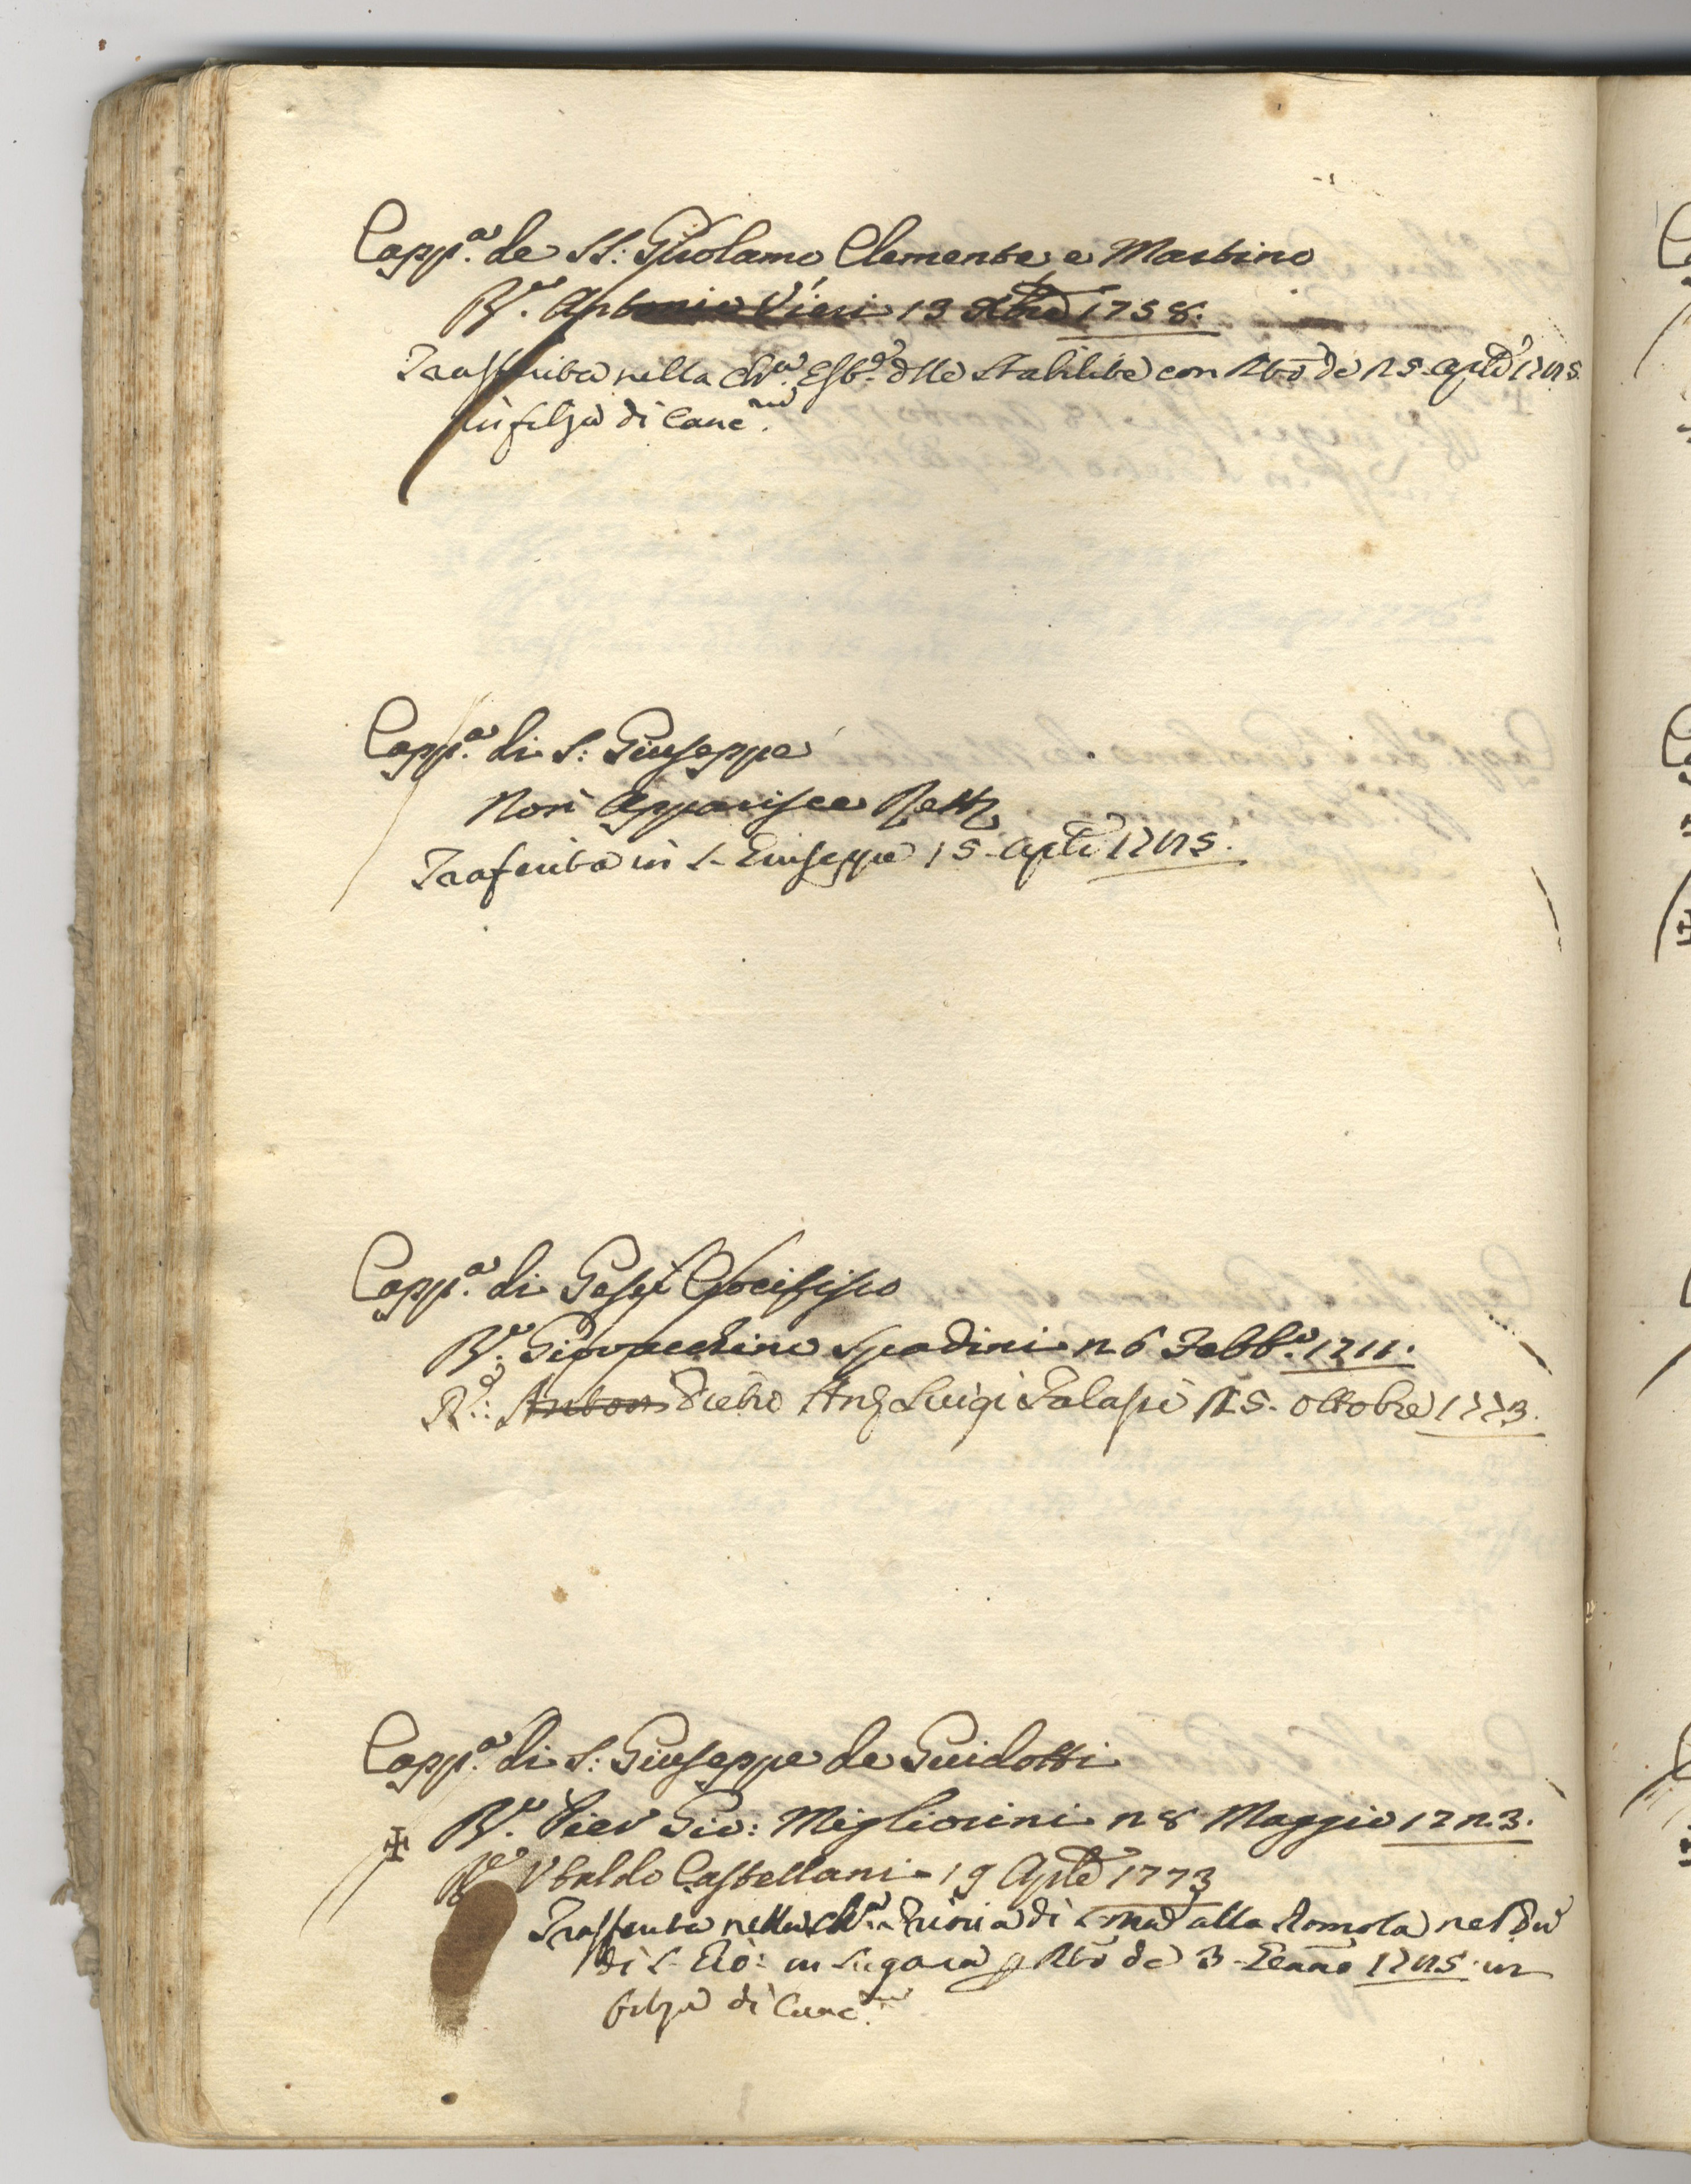 Capp.a de SS: Girolamo, Clemente, e Martino
R.e Antonio Vieri 13 Xbre 1758.
Trasferita nella Ch.a de dlle Stabilite con Rto de 25. Aple 1785.
in filza di Canc.ria
Capp.a di S: Giuseppe
Non Apparisce Rett.
Trasferita in S. Giuseppe 15. Aple 1785.
Capp.a di Gesù Crocifisso
R.e Giovacchino Spadini 26 Febb.o 1711.
R.e: Anton Pietro Ang Luigi Galassi 25. Ottobre 1773.
Capp.a di S: Giuseppe de Guidotti
R.e Pier Gio: Migliorini 28 Maggio 1723.
R.e Ubaldo Castellani 19 Aple 1773
Trasferita nella Ch.a Prioria di S. Ma alla Romola nel
di S. Gio: in Sugana p Rto de 3. Genno 1785. in
filza di Canc.ria